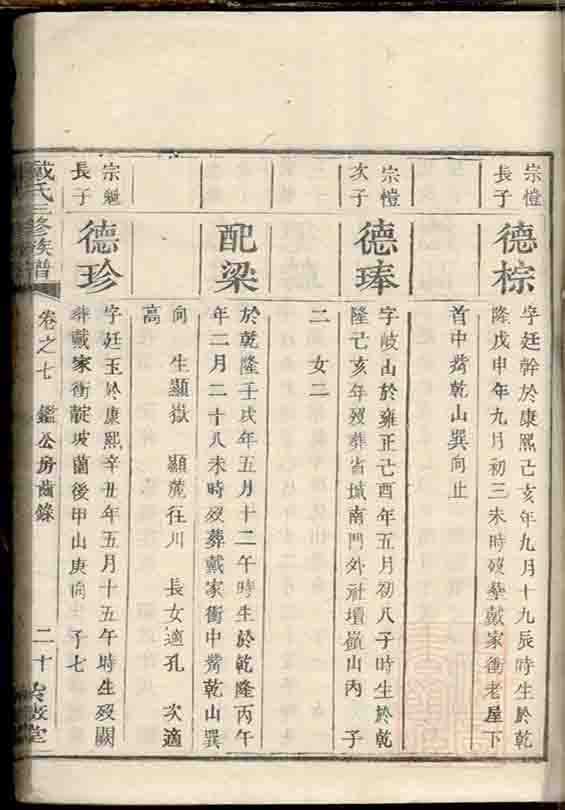 宗愷長子
德棕
字廷幹於康熙己亥年九月十九辰時生於乾
隆戊申年九月初三未時歿塟戴家衝老屋下
首中嘴乾山巽向止
宗愷次子
德琫
字岐山於雍正己酉年五月初八子時生於乾
隆己亥年歿葬省城南門外社壇嶺山內 子
二 女二
配梁
於乾隆壬戌年五月十二午時生於乾隆丙午
年二月二十八未時歿葬戴家衝中嘴乾山巽
向 生顯嶽 顯麓往川 長女適孔 次適
高
宗魁長子
德珍
字廷玉於康熙辛丑年五月十五午時生歿闕
葬戴家衝靛坡薗後甲山庚向 子七
戴氏三修族譜
卷之七 鑑公房齒錄 二十